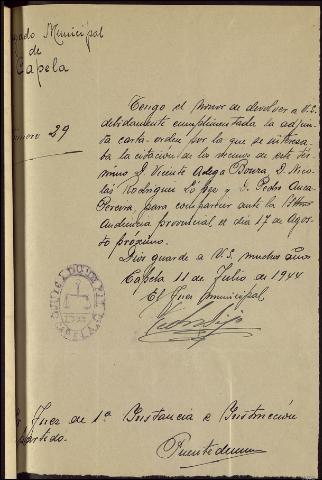 gado Municipal
de
Capela
número 29
Tengo el honor de devolver a V.S.
debidamente cumplimentada la adjun
ta carta-orden por la que se interesa
ba la citación de los vecinos de este tér
mino D. Vicente Adega Bouza D. Nico
lás Rodríguez López y D. Pedro
Pereira, para comparecer ante la Iltma
Audiencia provincial el día 17 de Agos
to próximo.
Dios guarde a V.S. muchos años
Capela 11 de Julio de 1944
El Juez municipal,
Juez de 1ª Instancia e Instrucción
partido.
Puentedeume